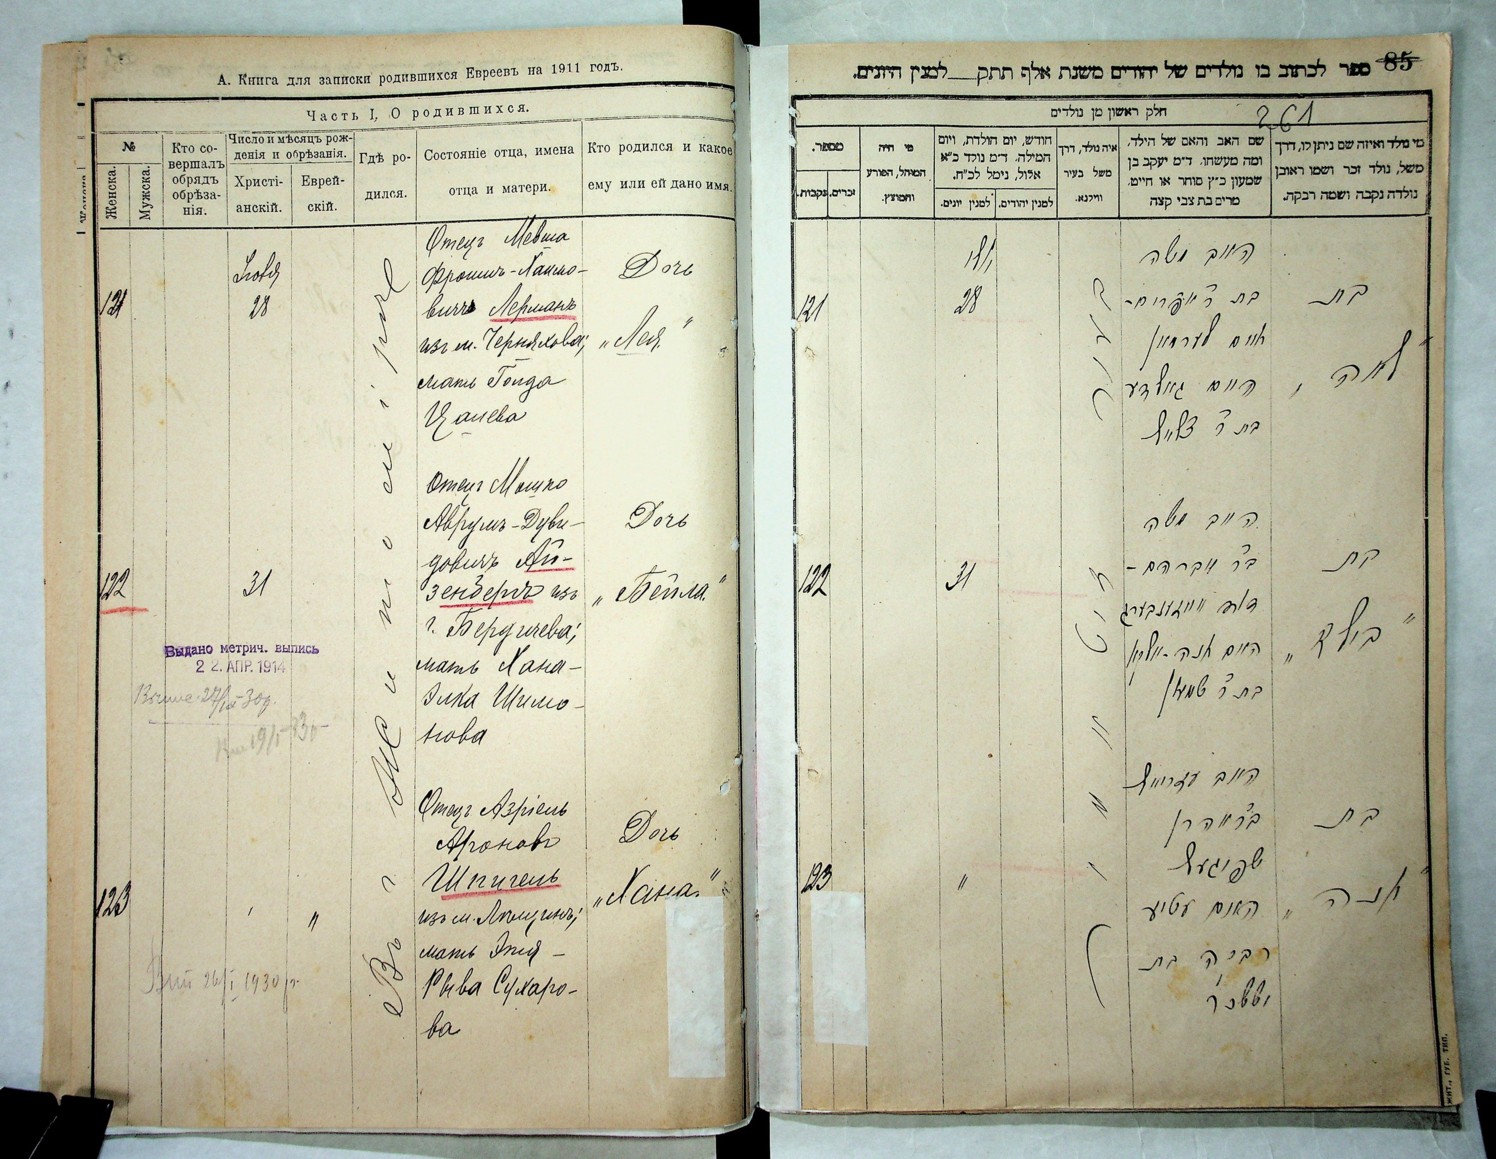 А. Книга для записки родившихся Евреевъ на 1911 годъ.
Часть I, О родившихся.
№
Женска.
Мужска.
Кто со-
вершалъ
обрядъ
обрѣза-
нія.
Число и мѣсяцъ рож-
денія и обрѣзанія.
Христі-
анскій.
Еврей-
скій.
Гдѣ ро-
дился.
Состояніе отца, имена
отца и матери.
Кто родился и какое
ему или ей дано имя.
Въ г. Житомірѣ
121
28
Отецъ Мевша
Фроимъ-Хаимо-
вичъ Лерманъ
изъ м. Черняхова;
мать Голда
Цалева
Дочь
„Лея"
122
31
Отецъ Мошко
Аврумъ-Дуви-
довичъ Ай-
зенбергъ изъ
г. Бердичева;
мать Хана-
Элка Шимо-
нова
Дочь
„Бейла"
Выдано метрич. выпись
22. АПР. 1914
123
"
Отецъ Азріель
Ароновъ
Шпигель
изъ м.
мать Этя-
Рыва Сухаро-
ва
Дочь
„Хана"
1930 г
85
ספר לכתוב בו נולדים של יהודים משנת אלף תתק__למנין היונים.
חלק ראשון מן נולדים
261
מספר.
נקבות.
זכרים.
מי היה
המוהל, הפורע
והמוצץ.
חודש, יום הולדת, ויום
המילה. ד״מ נולד כ״א
אלול, נימל לכ״ח.
למנין יונים.
למנין יהודים.
איה נולד, דרך
משל בעיר
ווילנא.
שם האב והאם של הילד,
ומה מעשהו. ד״מ יעקב בן
שמעון כ״ץ סוחר או חייט,
מרים בת צבי קצה
מי נולד ואיזה שם ניתן לו, דרך
משל, נולד זכר ושמו ראובן
נולדה נקבה ושמה רבקה.
121
יולי
28
האב משה
חיים לערמאן
האם גאלדע
בת ר׳
בת
לאה
122
31
האב משה
בר׳ אברהם-
דוד אייזענבערג
האם חנה-עלקא
בת ר׳ שמעון
בת
„בילא"
123
"
האב עזריאל
בר׳ אהרן
שפיגעל
האם עטיע
ריבה בת
יששכר
בת
„חנה"